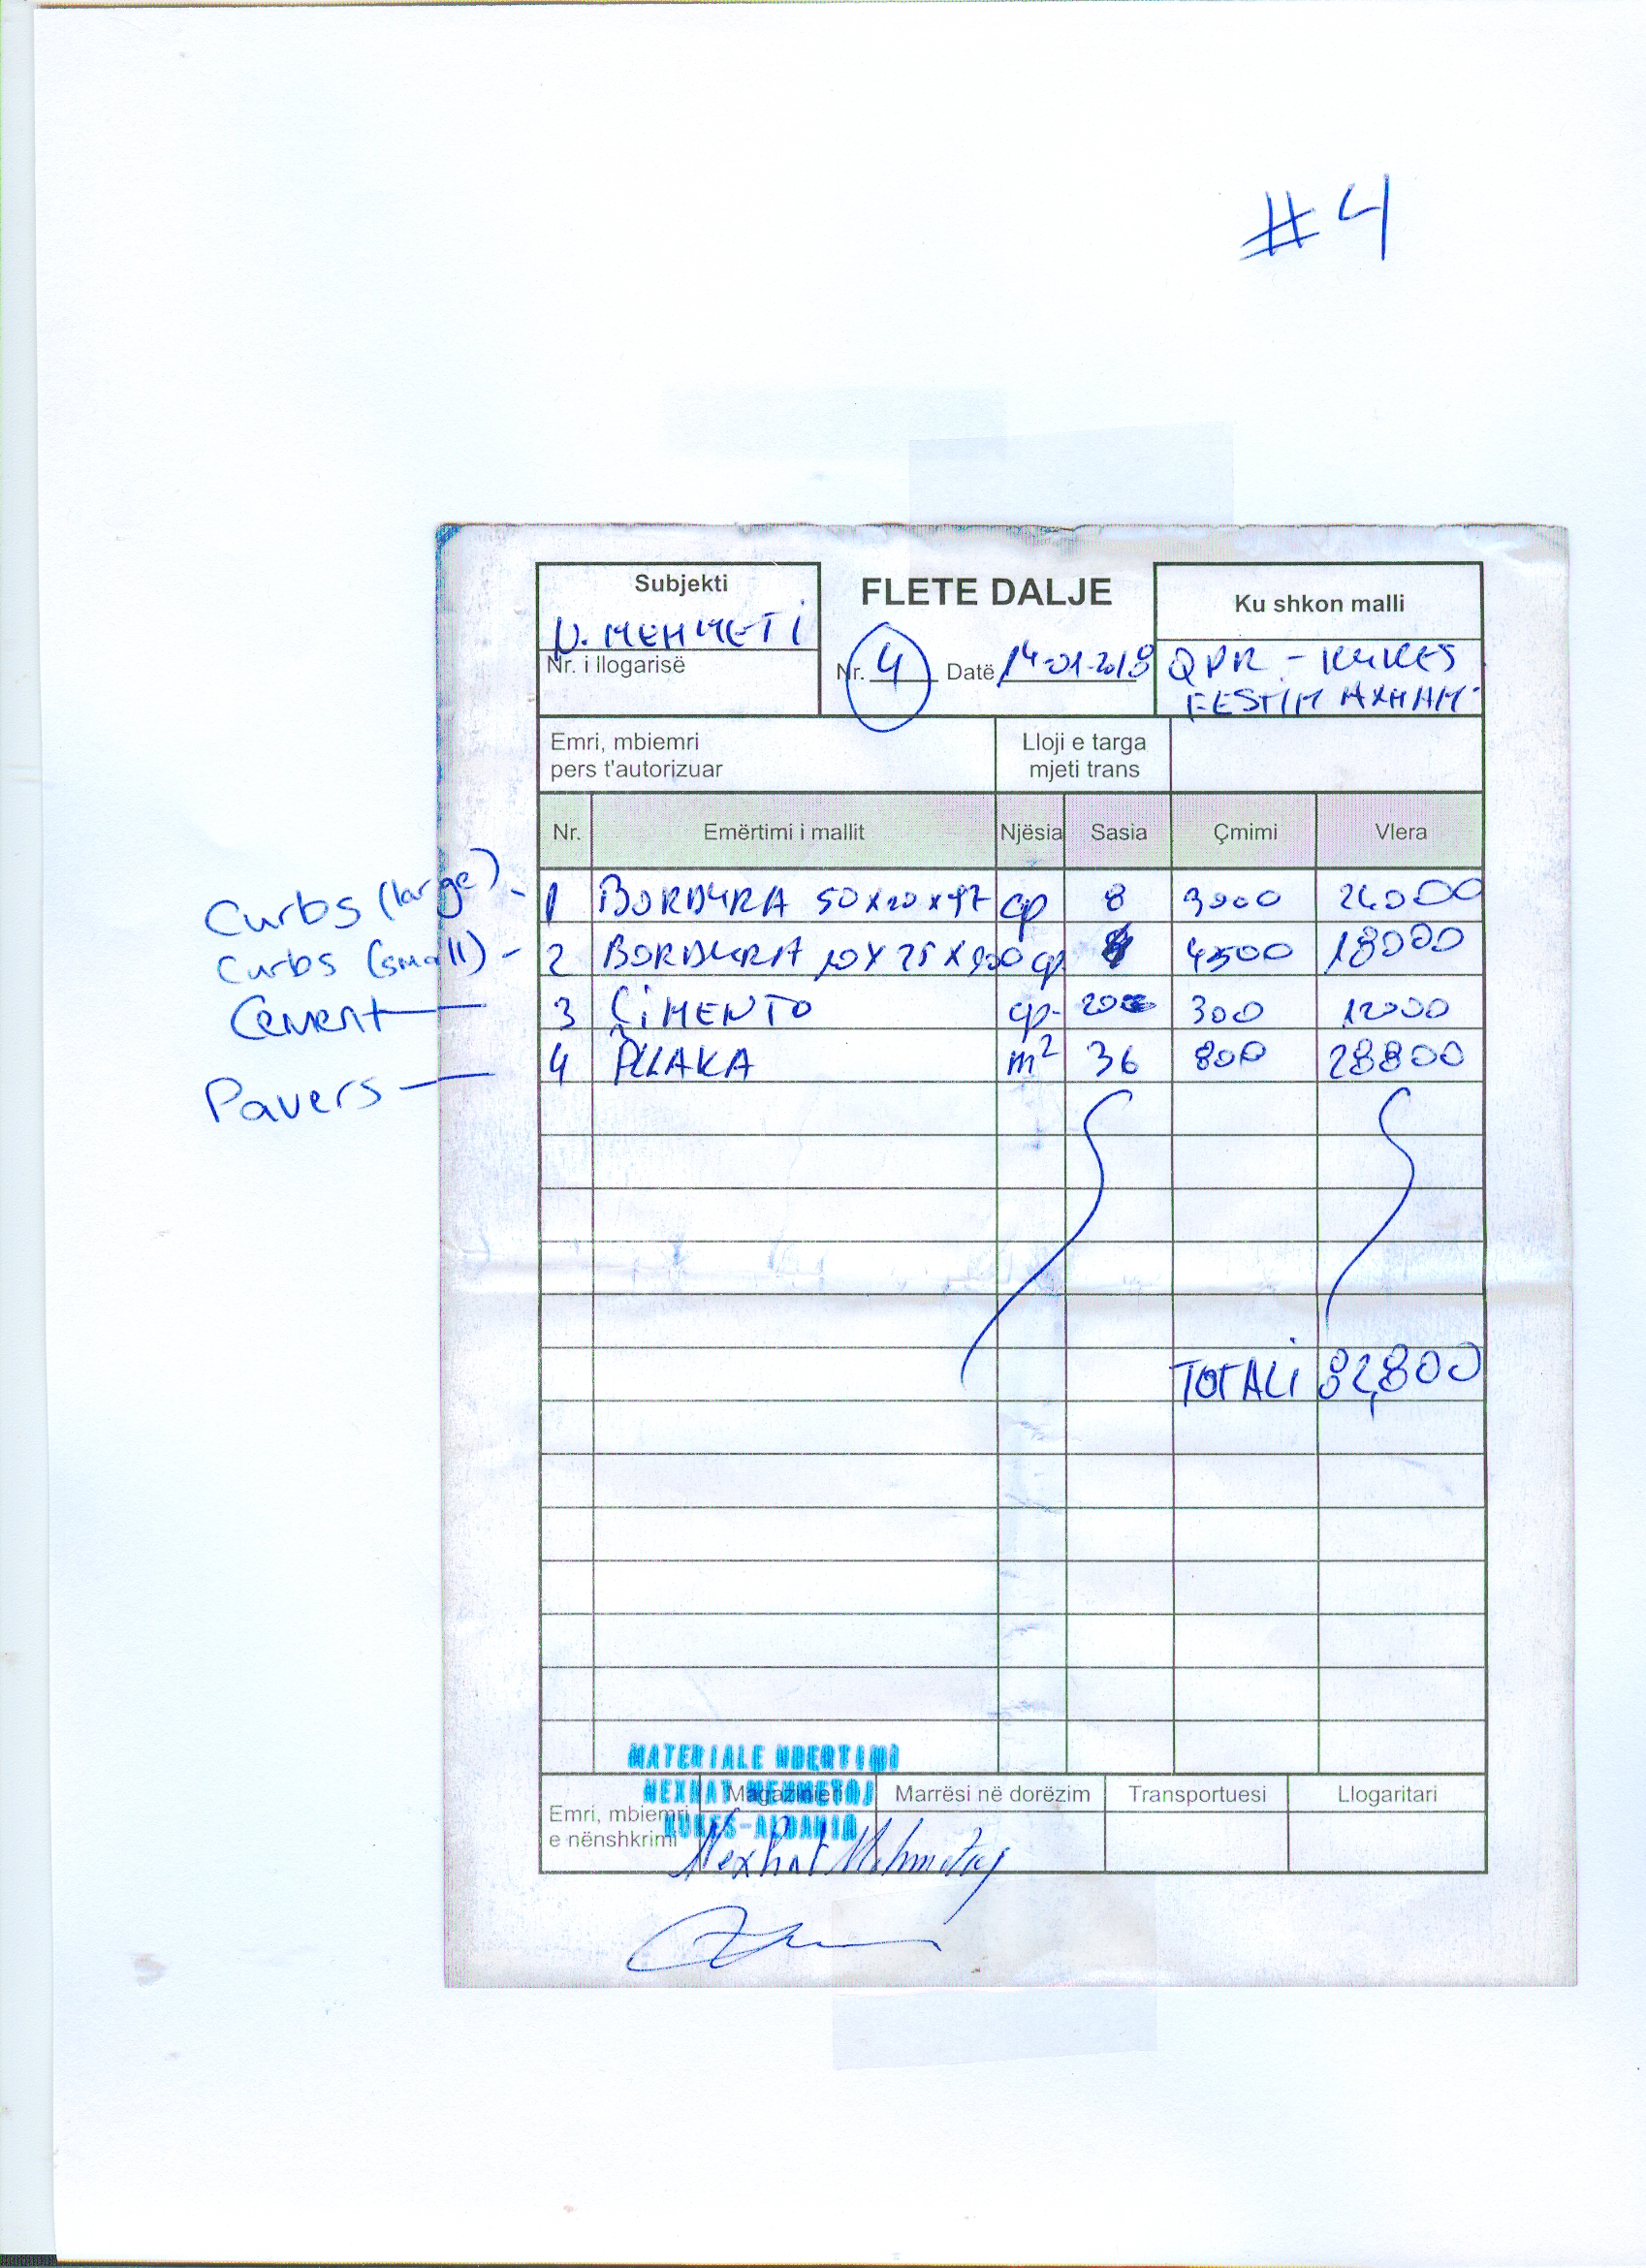 #4
Subjekti
N. MEHMETI
Nr. i llogarisë
FLETE DALJE
Nr. 4 Datë 14-01-2018
Ku shkon malli
QPR - KUKES
FESTIM AXHAMI
Emri, mbiemri
pers t'autorizuar
Lloji e targa
mjeti trans
Nr. Emërtimi i mallit Njësia Sasia Çmimi Vlera
Curbs (large) - 1 BORDURA 50x20x47 cp 8 3000 24000
Curbs (small) - 2 BORDURA 10x25x cp 4 4500 18000
Cement 3 ÇIMENTO cp. 300 12000
Pavers 4 PLLAKA m² 36 800 28800
TOTALI 82,800
MATERIALE NDERTIMI
NEXHAT MEHMETOJ
KUKES-ALBANIA
Emri, mbiemri
e nënshkrimi
Magazinieri Marrësi në dorëzim Transportuesi Llogaritari
Nexhat Mehmetaj